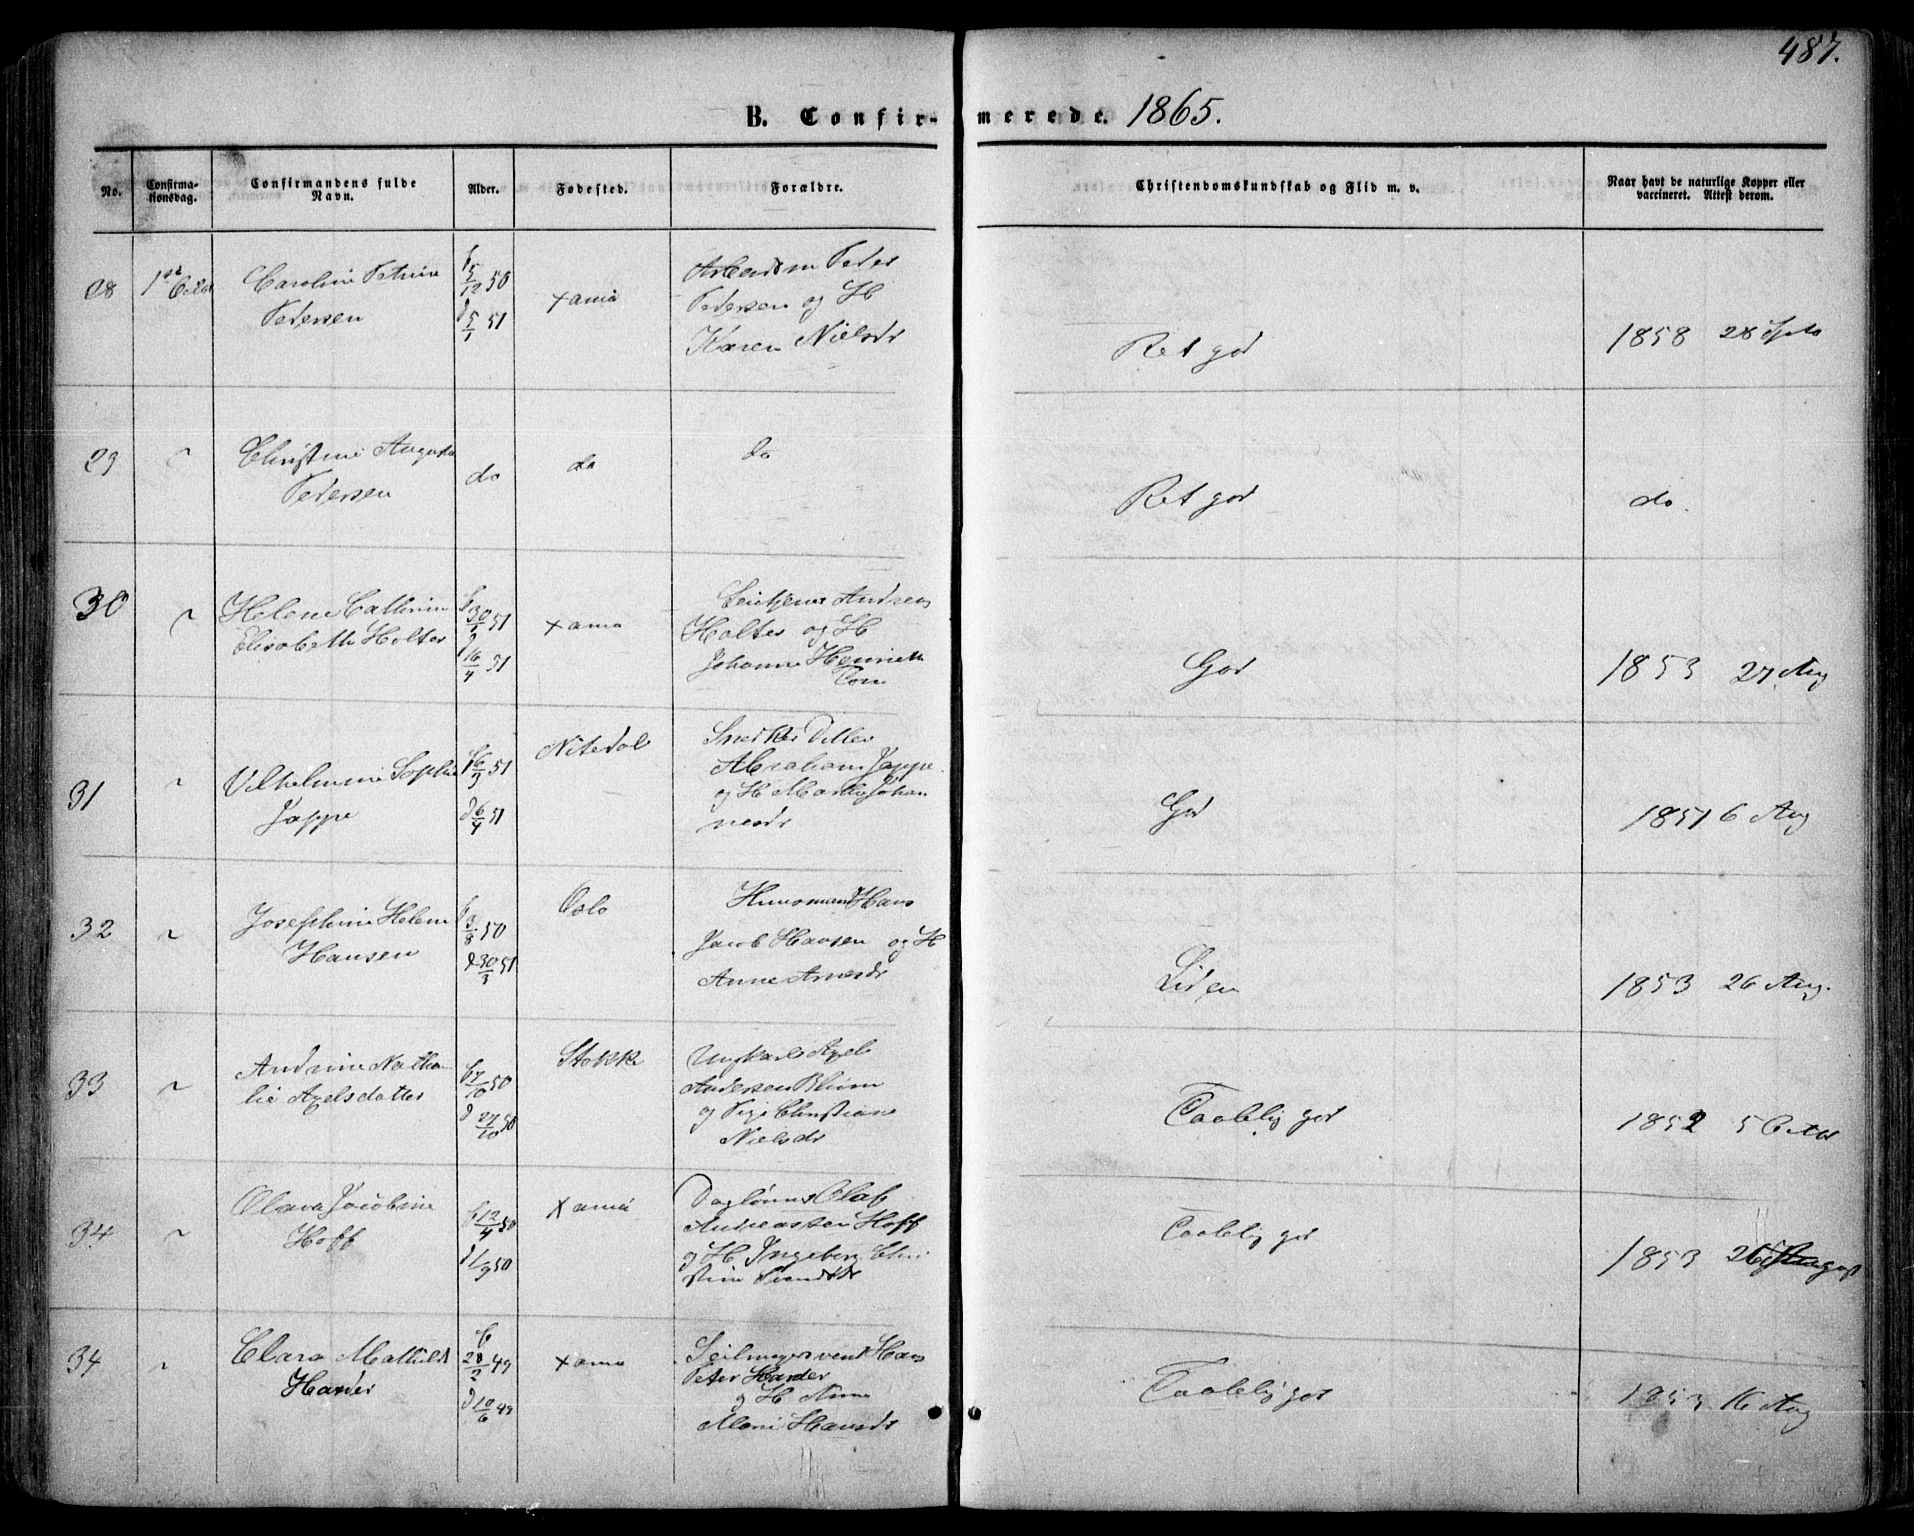 487.
B. Confir- merede. 1865.
No.
Confirma-
tionsdag.
Confirmandens fulde
Navn.
Alder.
Fødested.
Forældre.
Christendomskundskab og Flid m. v.
Naar havt de naturlige Kopper eller
vaccineret. Attest derom.
28
Caroline Petrine
Pedersen
b 5/12 50
d 5/1 51
Xania
Peder
Pedersen og H
Karen Nielsdr
Ret god
1858 28 Sept
29
Christine Augusta
Pedersen
do
do
do
Ret god
do.
30
Helene Cathrine
Elisabeth Holter
b 30/1 51
d 16/4 51
Xania
Andreas
Holter og H
Johanne Henriette
God
1853 27 Aug
31
Vilhelmine Sophie
Jappe
b 16/3 51
d 6/4 51
Nitedal
Snedker Ditlev
Abraham Jappe
og H Marthe Johan
nesdr
God
1851 6 Aug
32
Josephine Helene
Hansen
b 3/8 50
d 30/3 51
Oslo
Huusmand Hans
Jacob Hansen og H
Anne Arnesdr
Liden
1853 26 Aug.
33
Andrine Natha
lie Axelsdatter
b 7/10 50
d 27/10 50
Stokke
Ungkarl Axel
Andersen Blum
og Pige Christiane
Nielsdr
Taalelig god
1852 5 Octor
34
Olava Jacobine
Hoff
b 12/4 50
d 1/9 50
Xania
Daglønner Olaf
Andreassen Hoff
og H Ingeborg Chri
stine Svendsdr
Taalelig god
1853 26 August
34
Clara Mathilde
Harder
b
28/2 49
d 10/6 49
Xania
Seilmagersvend Hans
Peter Harder
og H Anne
Marie Hansdr
Taalelig god
1853 16 Aug